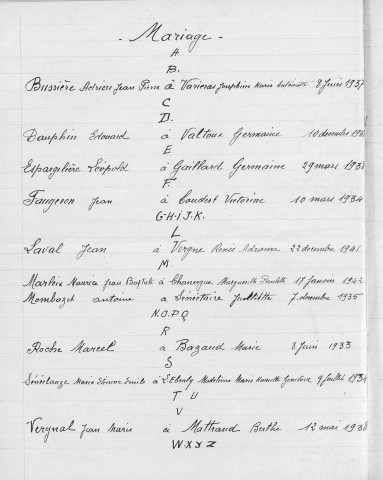 - Mariage -
A
B.
Bussière Adrien Jean Pierre à Varieras Josephine Marie Antoinette 8 Juin 1937
C
D.
Dauphin Edouard à Valtoux Germaine 10 decembre
E
Espargilière Léopold à Gaillard Germaine 29 mars 1938
F.
Faugeron Jean à Coudert Victorine 10 mars 1934
G.H.I.J.K.
L
Laval Jean à Vergne Renée Adrienne 22 decembre 1941
M.
Marleix Maurice Jean Baptiste à Marguerite Paulette 17 Janvier 1942
Mombazet antoine à Sénéctaire Juilletta 7 decembre 1935
N.O.P.Q
R
Roche Marcel à Bazaud Marie 8 Juin 1933
S
Marie Etienne Emile à Madeleine Marie Genevieve 9 Juillet 1934
T U
V
Vergnal Jean Marie à Mattrand Berthe 12 mai 1938
W.X.Y.Z